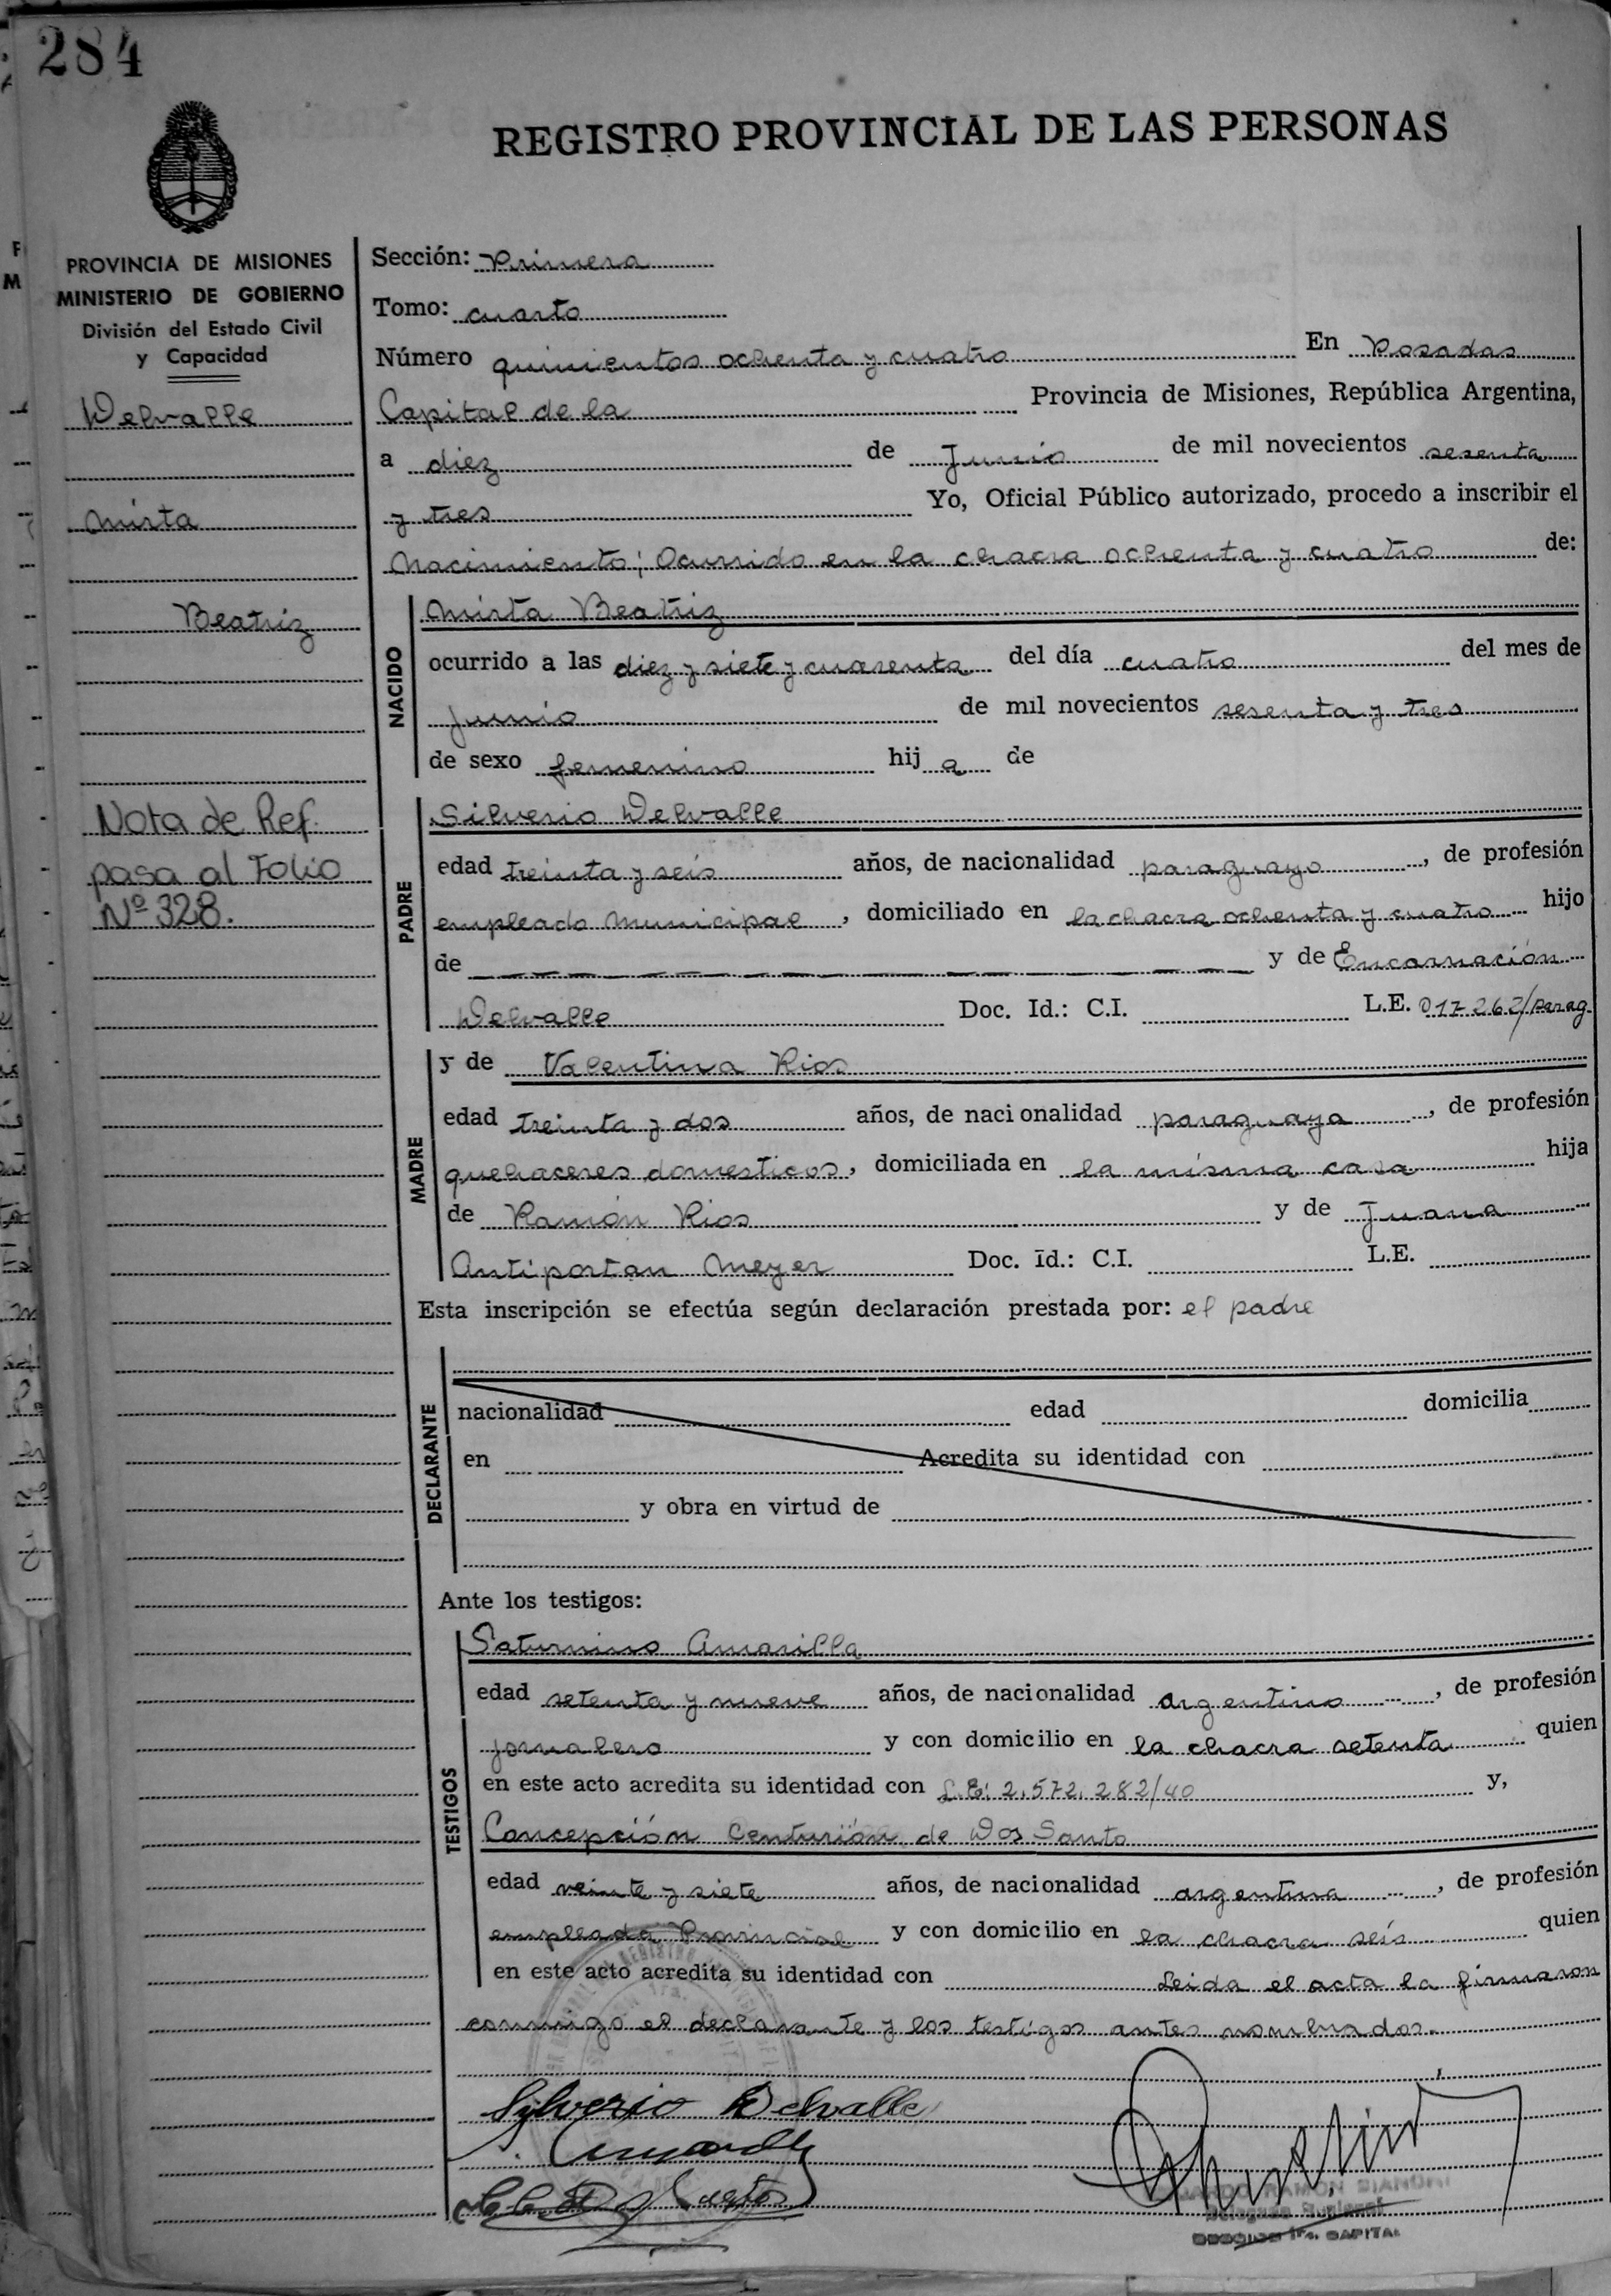 284
REGISTRO PROVINCIAL DE LAS PERSONAS
PROVINCIA DE MISIONES
MINISTERIO DE GOBIERNO
División del Estado Civil
y Capacidad
Delvalle
Mirta
Beatriz
Nota de Ref.
pasa al Folio
Nº 328.
Sección: Primera
Tomo: cuarto
Número quinientos ochenta y cuatro En Posadas
Capital de la Provincia de Misiones, República Argentina,
a diez de Junio de mil novecientos sesenta
y tres Yo, Oficial Público autorizado, procedo a inscribir el
Nacimiento; Ocurrido en la chacra ochenta y cuatro de:
NACIDO
Mirta Beatriz
ocurrido a las diez y siete y cuarenta del día cuatro del mes de
junio de mil novecientos sesenta y tres
de sexo femenino hij a de
PADRE
Silverio Delvalle
edad treinta y seis años, de nacionalidad paraguayo, de profesión
empleado Municipal, domiciliado en la chacra ochenta y cuatro hijo
de y de Encarnación
Delvalle Doc. Id.: C.I. L.E. 017262/Parag.
MADRE
y de Valentina Rios
edad treinta y dos años, de nacionalidad paraguaya, de profesión
quehaceres domesticos, domiciliada en la misma casa hija
de Ramón Rios y de Juana
Antiportan Meyer Doc. Id.: C.I. L.E.
Esta inscripción se efectúa según declaración prestada por: el padre
DECLARANTE
nacionalidad edad domicilia
en Acredita su identidad con
y obra en virtud de
Ante los testigos:
TESTIGOS
Saturnino Amarilla
edad setenta y nueve años, de nacionalidad argentino, de profesión
jornalero y con domicilio en la chacra setenta quien
en este acto acredita su identidad con L.E. 2.572.282/40 y,
Concepción Centurión de Dos Santo
edad veinte y siete años, de nacionalidad argentina, de profesión
empleada Provincial y con domicilio en la chacra seis quien
en este acto acredita su identidad con Leida el acta la firmaron
conmigo el declarante y los testigos antes nombrados.
Sylverio Delvalle
RAMON
CAPITAL